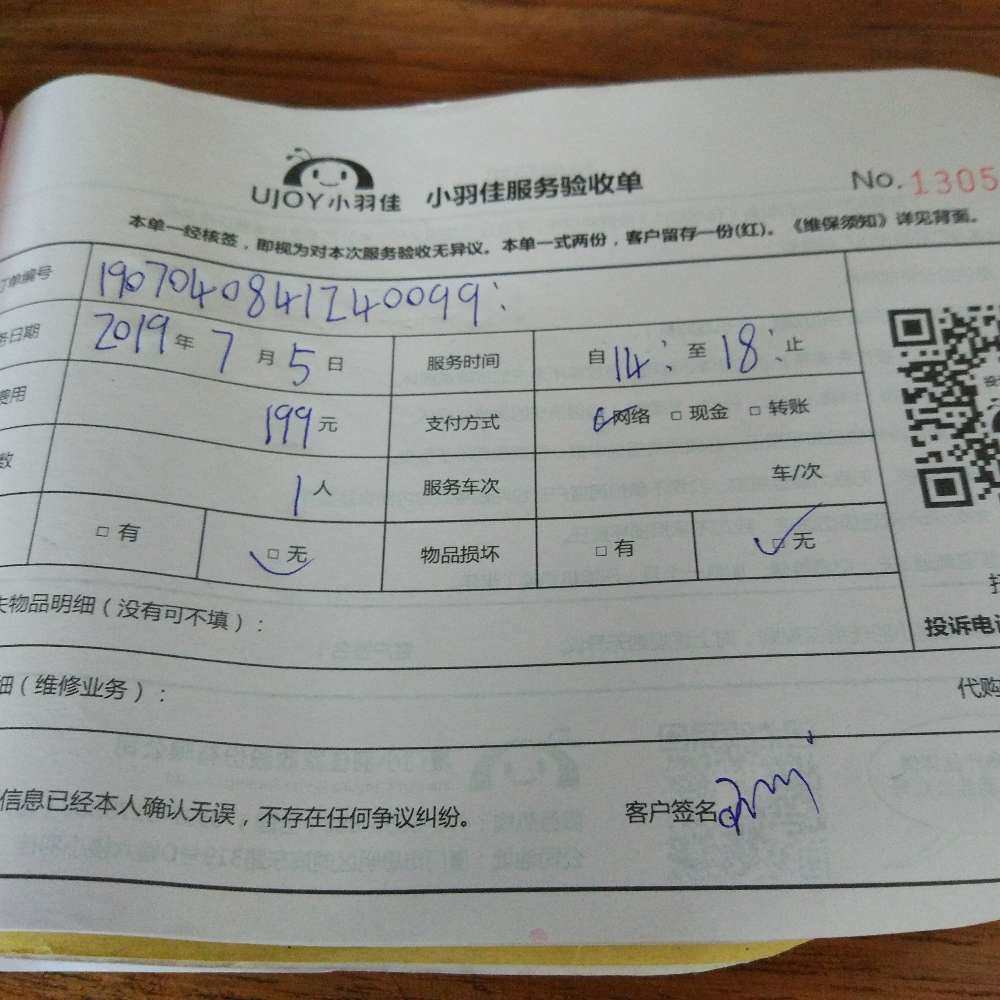 UJOY小羽佳 小羽佳服务验收单 No.1305
本单一经核签，即视为对本次服务验收无异议。本单一式两份，客户留存一份(红)。《维保须知》详见背面。
订单编号 1907040841240099:
务日期 2019年7月5日 服务时间 自14:至18:止
费用 199元 支付方式 网络 □现金 □转账
数 1人 服务车次 车/次
□有 □无 物品损坏 □有 □无
失物品明细（没有可不填）：
投诉电话
细（维修业务）： 代购
信息已经本人确认无误，不存在任何争议纠纷。 客户签名